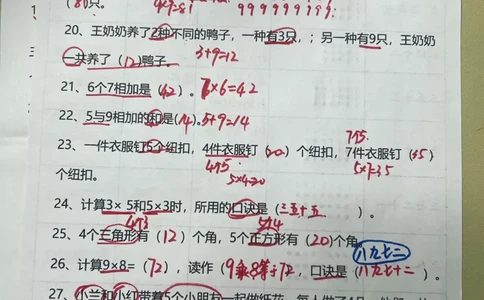 (80)只。 9×9=81 999999999
20、王奶奶养了2种不同的鸭子,一种有3只,;另一种有9只,王奶奶
一共养了(12)鸭子。 3+9=12
21、6个7相加是(42)。 7×6=42
22、5与9相加的和是(14)。5+9=14
23、一件衣服钉5个纽扣,4件衣服钉(20)个纽扣,7件衣服钉(35)
个纽扣。 4个5 5×4=20 7个5 5×7=35
24、计算3× 5和5×3时,所用的口诀是(三五十五 )。
25、4个三角形有(12)个角,5个正方形有(20)个角。 4个3 5个4
26、计算9×8=(72),读作(9乘8等于72,口诀是(八九七十二)。 八九七二
27、小兰和小红带着5个小朋友一起做纸花,每人做了4只